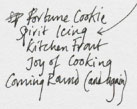 Fortune Cookie
Spirit Icing
Kitchen Trout
Joy of Cooking
Coming Round (and Again)